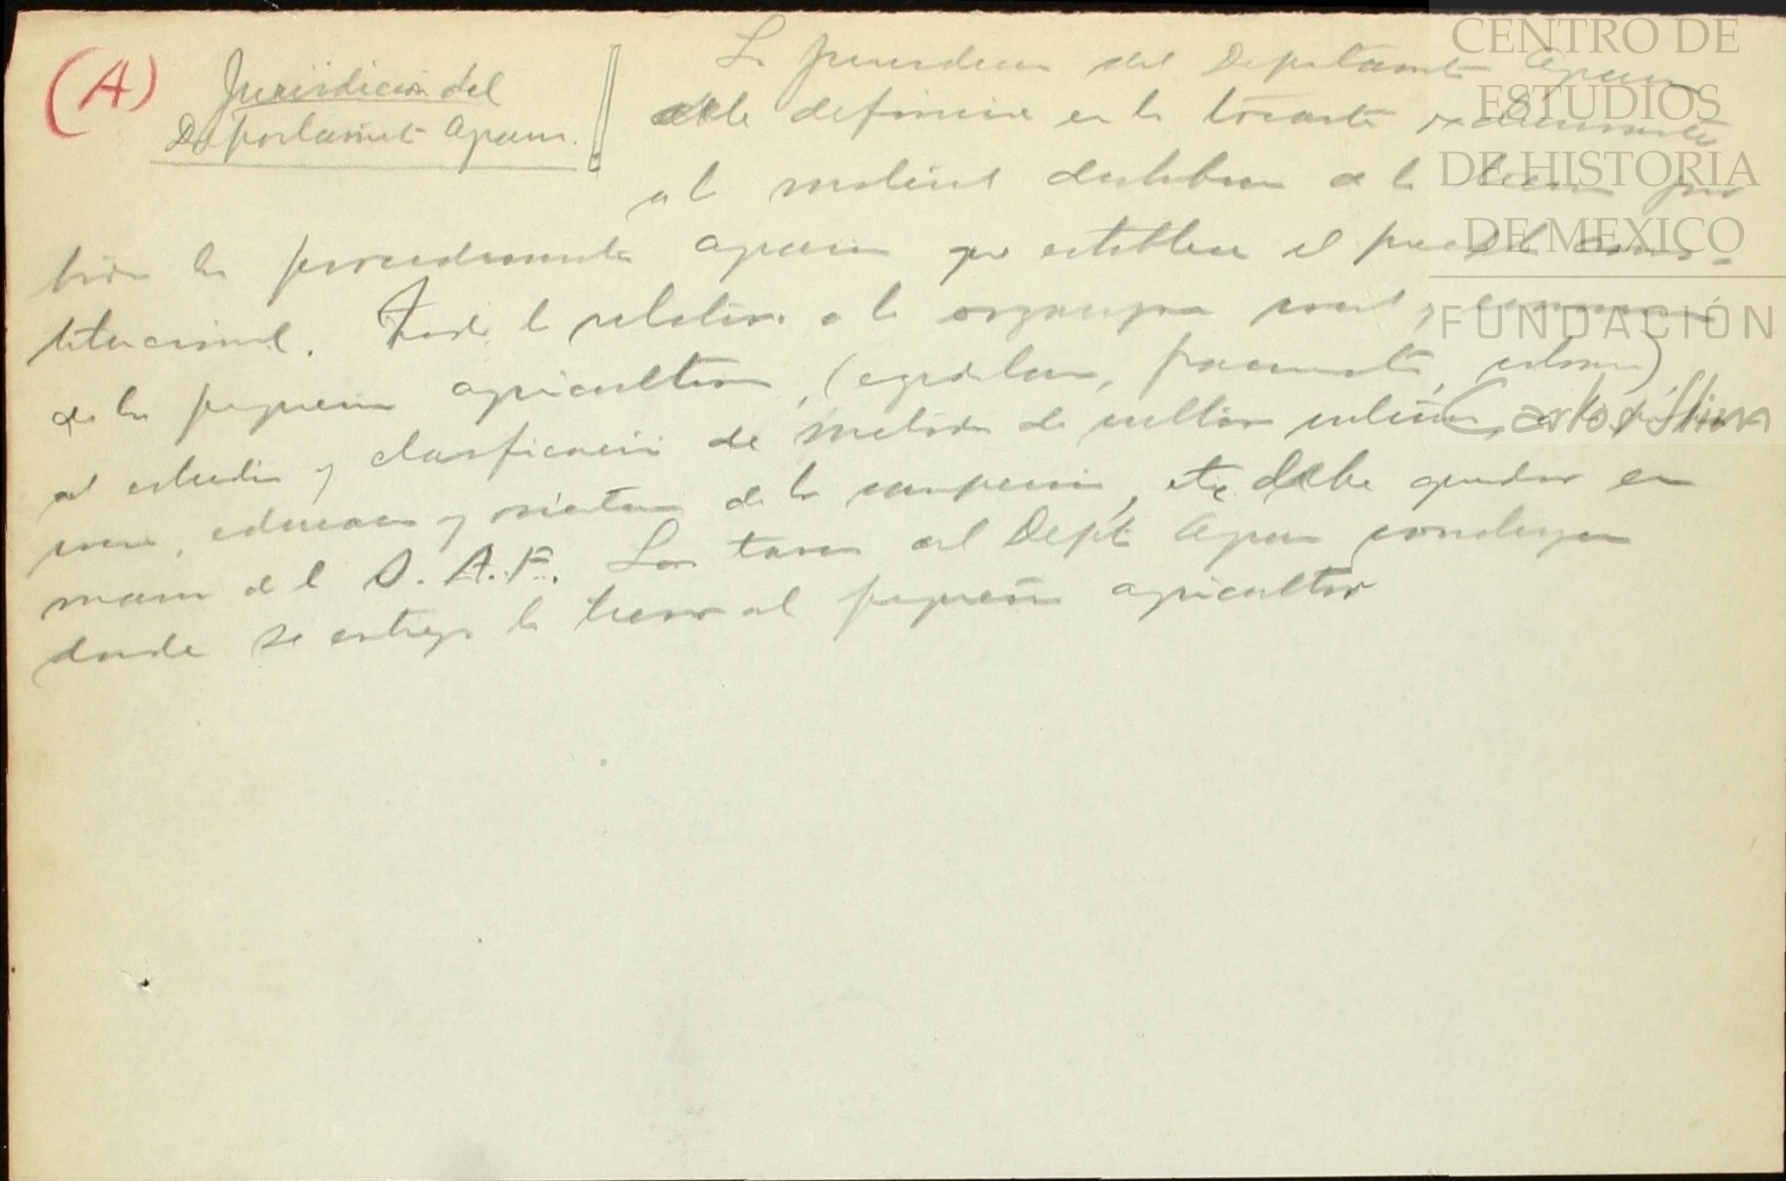 (A)
Jurisdicción del
Departamento Agrario.
La jurisdicción del Departamento Agrario
debe definirse en lo tocante exclusivamente
a la distribución de la tierra
los procedimientos agrarios que establece el precepto cons-
titucional. Todo lo relativo a la organización social y
de los pequeños agricultores, (ejidatarios,
al estudio y clasificación de métodos de cultivo
educación y de los campesinos, etc. debe quedar en
manos de la S. A. F. Las tareas del Depto Agrario concluyen
donde se entrega la tierra al pequeño agricultor
CENTRO DE
ESTUDIOS
DE HISTORIA
DE MEXICO
FUNDACIÓN
Carlos Slim